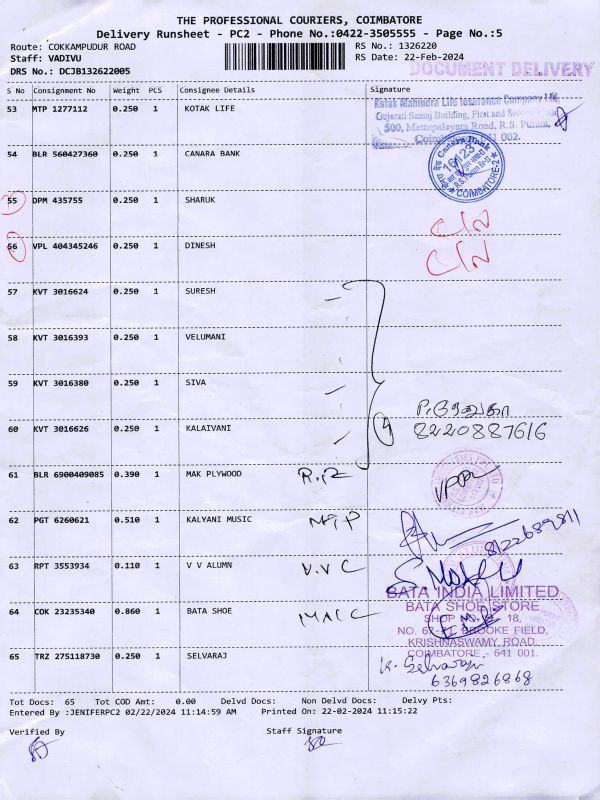 THE PROFESSIONAL COURIERS, COIMBATORE
Delivery Runsheet - PC2 - Phone No.:0422-3505555 - Page No.:5
Route: COKKAMPUDUR ROAD
RS No.: 1326220
Staff: VADIVU
RS Date: 22-Feb-2024
DRS No.: DCJB132622005
DOCUMENT DELIVERY
S No Consignment No Weight PCS Consignee Details Signature
53 MTP 1277112 0.250 1 KOTAK LIFE
Kotak Mahindra Life Insurance Company Ltd.
Gujarati Samaj Building, First and Second
500, Mettupalayam Road, R.S. Puram,
Coimbatore 641 002.
54 BLR 560427360 0.250 1 CANARA BANK
Canara Bank
16123
COIMBATORE-2
55 DPM 435755 0.250 1 SHARUK
C/N
56 VPL 404345246 0.250 1 DINESH
C/N
57 KVT 3016624 0.250 1 SURESH
58 KVT 3016393 0.250 1 VELUMANI
59 KVT 3016380 0.250 1 SIVA
60 KVT 3016626 0.250 1 KALAIVANI
4
8220887616
61 BLR 6900409085 0.390 1 MAK PLYWOOD R.R
62 PGT 6260621 0.510 1 KALYANI MUSIC
8122689811
63 RPT 3553934 0.110 1 V V ALUMN V.V C
BATA INDIA LIMITED
64 COK 23235340 0.860 1 BATA SHOE
BATA SHOE STORE
SHOP 18,
NO. BROOKE FIELD,
KRISHNASWAMY ROAD,
COIMBATORE - 641 001.
65 TRZ 275118730 0.250 1 SELVARAJ
K. Selvaraj
6369826868
Tot Docs: 65 Tot COD Amt: 0.00 Delvd Docs: Non Delvd Docs: Delvy Pts:
Entered By :JENIFERPC2 02/22/2024 11:14:59 AM Printed On: 22-02-2024 11:15:22
Verified By Staff Signature